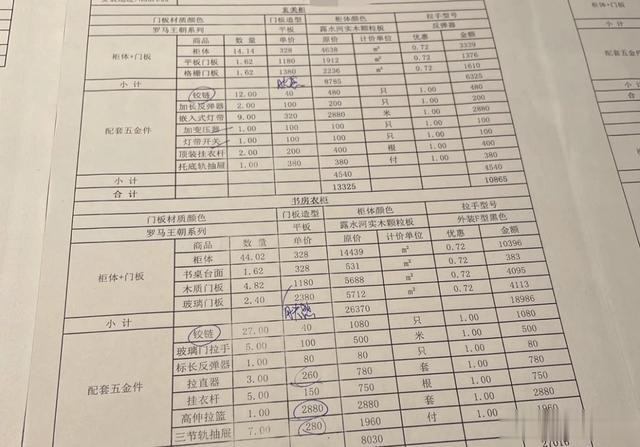 玄关柜
门板材质颜色 门板造型 柜体颜色 拉手型号
罗马王朝系列 平板 露水河实木颗粒板 反弹器
柜体+门板 商品 数量 单价 原价 计价单位 优惠 金额
柜体 14.14 328 4638 m² 0.72 3339
平板门板 1.62 1180 1912 m² 0.72 1376
格栅门板 1.62 1380 2236 m² 0.72 1610
小计 8785 6325
配套五金件 铰链 12.00 40 480 只 1.00 480
加长反弹器 2.00 100 200 只 1.00 200
嵌入式灯带 9.00 320 2880 米 1.00 2880
加变压器 1.00 100 100 只 1.00 100
灯带开关 1.00 100 100 只 1.00 100
顶装挂衣杆 2.00 200 400 根 1.00 400
托底轨抽屉 1.00 380 380 付 1.00 380
小计 4540 4540
合计 13325 10865
书房衣柜
门板材质颜色 门板造型 柜体颜色 拉手型号
罗马王朝系列 平板 露水河实木颗粒板 外装F型黑色
柜体+门板 商品 数量 单价 原价 计价单位 优惠 金额
柜体 44.02 328 14439 m² 0.72 10396
书桌台面 1.62 328 531 m² 0.72 383
木质门板 4.82 1180 5688 m² 0.72 4095
玻璃门板 2.40 2380 5712 m² 0.72 4113
小计 26370 18986
配套五金件 铰链 27.00 40 1080 只 1.00 1080
玻璃门拉手 5.00 100 500 米 1.00 500
标长反弹器 1.00 80 80 只 1.00 80
拉直器 3.00 260 780 套 1.00 780
挂衣杆 5.00 150 750 根 1.00 750
高伸拉篮 1.00 2880 2880 套 1.00 2880
三节轨抽屉 7.00 280 1960 付 1.00 1960
8030